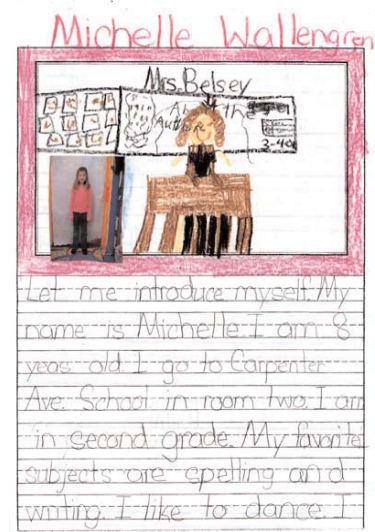 Michelle Wallengren
Mrs. Belsey
About the
Author
Let me introduce myself. My
name is Michelle. I am 8
yeas old. I go to Carpenter
Ave. School in room two. I am
in second grade. My favorite
subjects are spelling and
writing. I like to dance. I